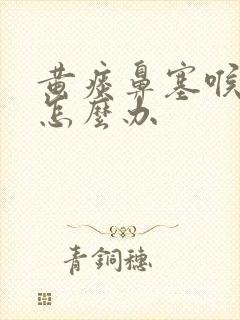 黄痰鼻塞喉
怎麼办
青銅穗